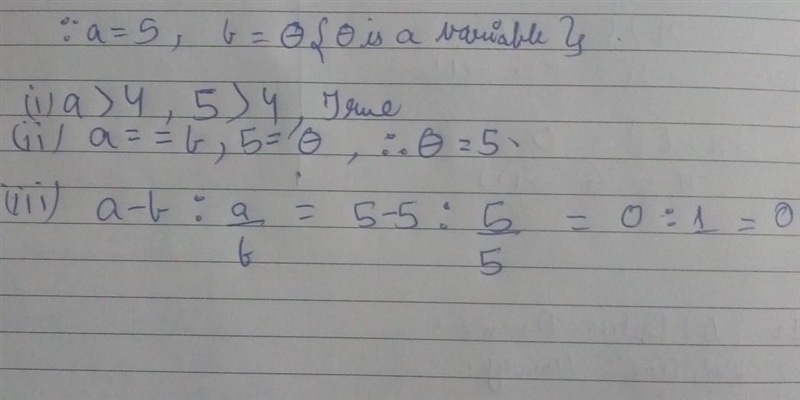 ∵ a = 5, b = θ {θ is a variable}.
(i) a > 4, 5 > 4, True
(ii) a = = b, 5 = θ, ∴ θ = 5.
(iii) a-b : a/b = 5-5 : 5/5 = 0 : 1 = 0